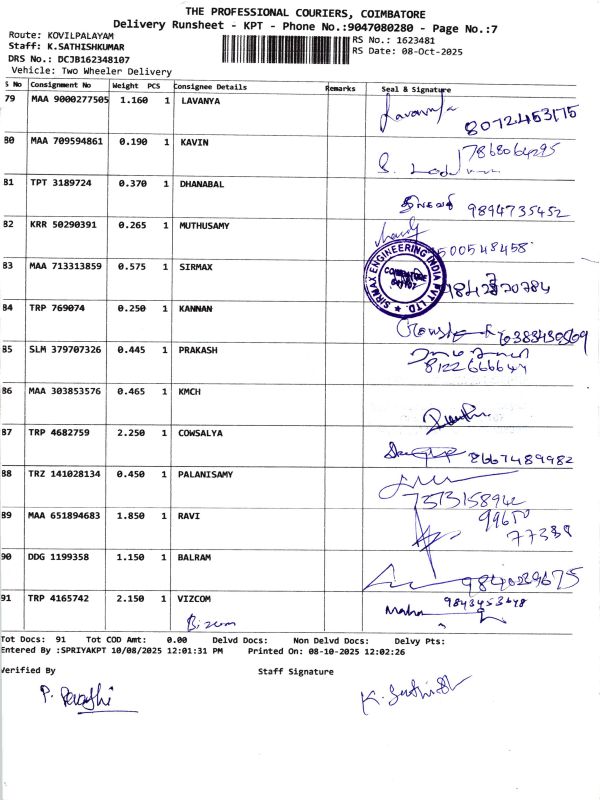 THE PROFESSIONAL COURIERS, COIMBATORE
Delivery Runsheet - KPT - Phone No.:9047080280 - Page No.:7
Route: KOVILPALAYAM
RS No.: 1623481
Staff: K.SATHISHKUMAR
RS Date: 08-Oct-2025
DRS No.: DCJB162348107
Vehicle: Two Wheeler Delivery
S No Consignment No Weight PCS Consignee Details Remarks Seal & Signature
79 MAA 9000277505 1.160 1 LAVANYA 8072453175
80 MAA 709594861 0.190 1 KAVIN 7868064295
81 TPT 3189724 0.370 1 DHANABAL 9894735452
82 KRR 50290391 0.265 1 MUTHUSAMY 500548458
83 MAA 713313859 0.575 1 SIRMAX
SIRMAX ENGINEERING INDIA PVT LTD. COIMBATORE
84 TRP 769074 0.250 1 KANNAN
85 SLM 379707326 0.445 1 PRAKASH
86 MAA 303853576 0.465 1 KMCH
87 TRP 4682759 2.250 1 COWSALYA 8667489982
88 TRZ 141028134 0.450 1 PALANISAMY 7373158942
89 MAA 651894683 1.850 1 RAVI 99650
77388
90 DDG 1199358 1.150 1 BALRAM 9840239675
91 TRP 4165742 2.150 1 VIZCOM Maha
Bizcom
Tot Docs: 91 Tot COD Amt: 0.00 Delvd Docs: Non Delvd Docs: Delvy Pts:
Entered By :SPRIYAKPT 10/08/2025 12:01:31 PM Printed On: 08-10-2025 12:02:26
Verified By Staff Signature
K. Sathish